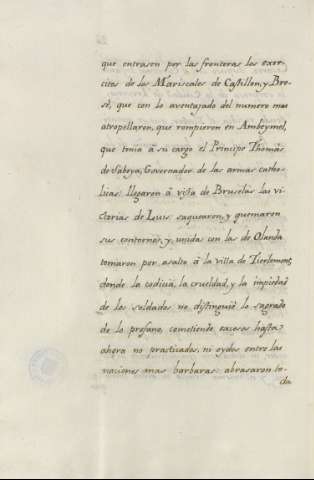 que entrasen por las fronteras los exer-
citos de los Mariscales de Castillon, y Bre-
sè, que con lo aventajado del numero mas
atropellaron, que rompieron en Ambeymel,
que tenia â su cargo el Principe Thomàs
de Saboya, Governador de las armas catho-
licas: llegaron â vista de Bruselas las vi-
ctorias de Luis: saquearon, y quemaron
sus contornos, y unida con las de Olanda
tomaron por asalto â la villa de Tierlemont,
donde la codicia, la crueldad, y la impiedad
de los soldados no distinguiò lo sagrado
de lo profano, cometiendo excesos hasta
ahora no practicados, ni oydos entre las
naciones mas barbaras: abrasaron to-
da